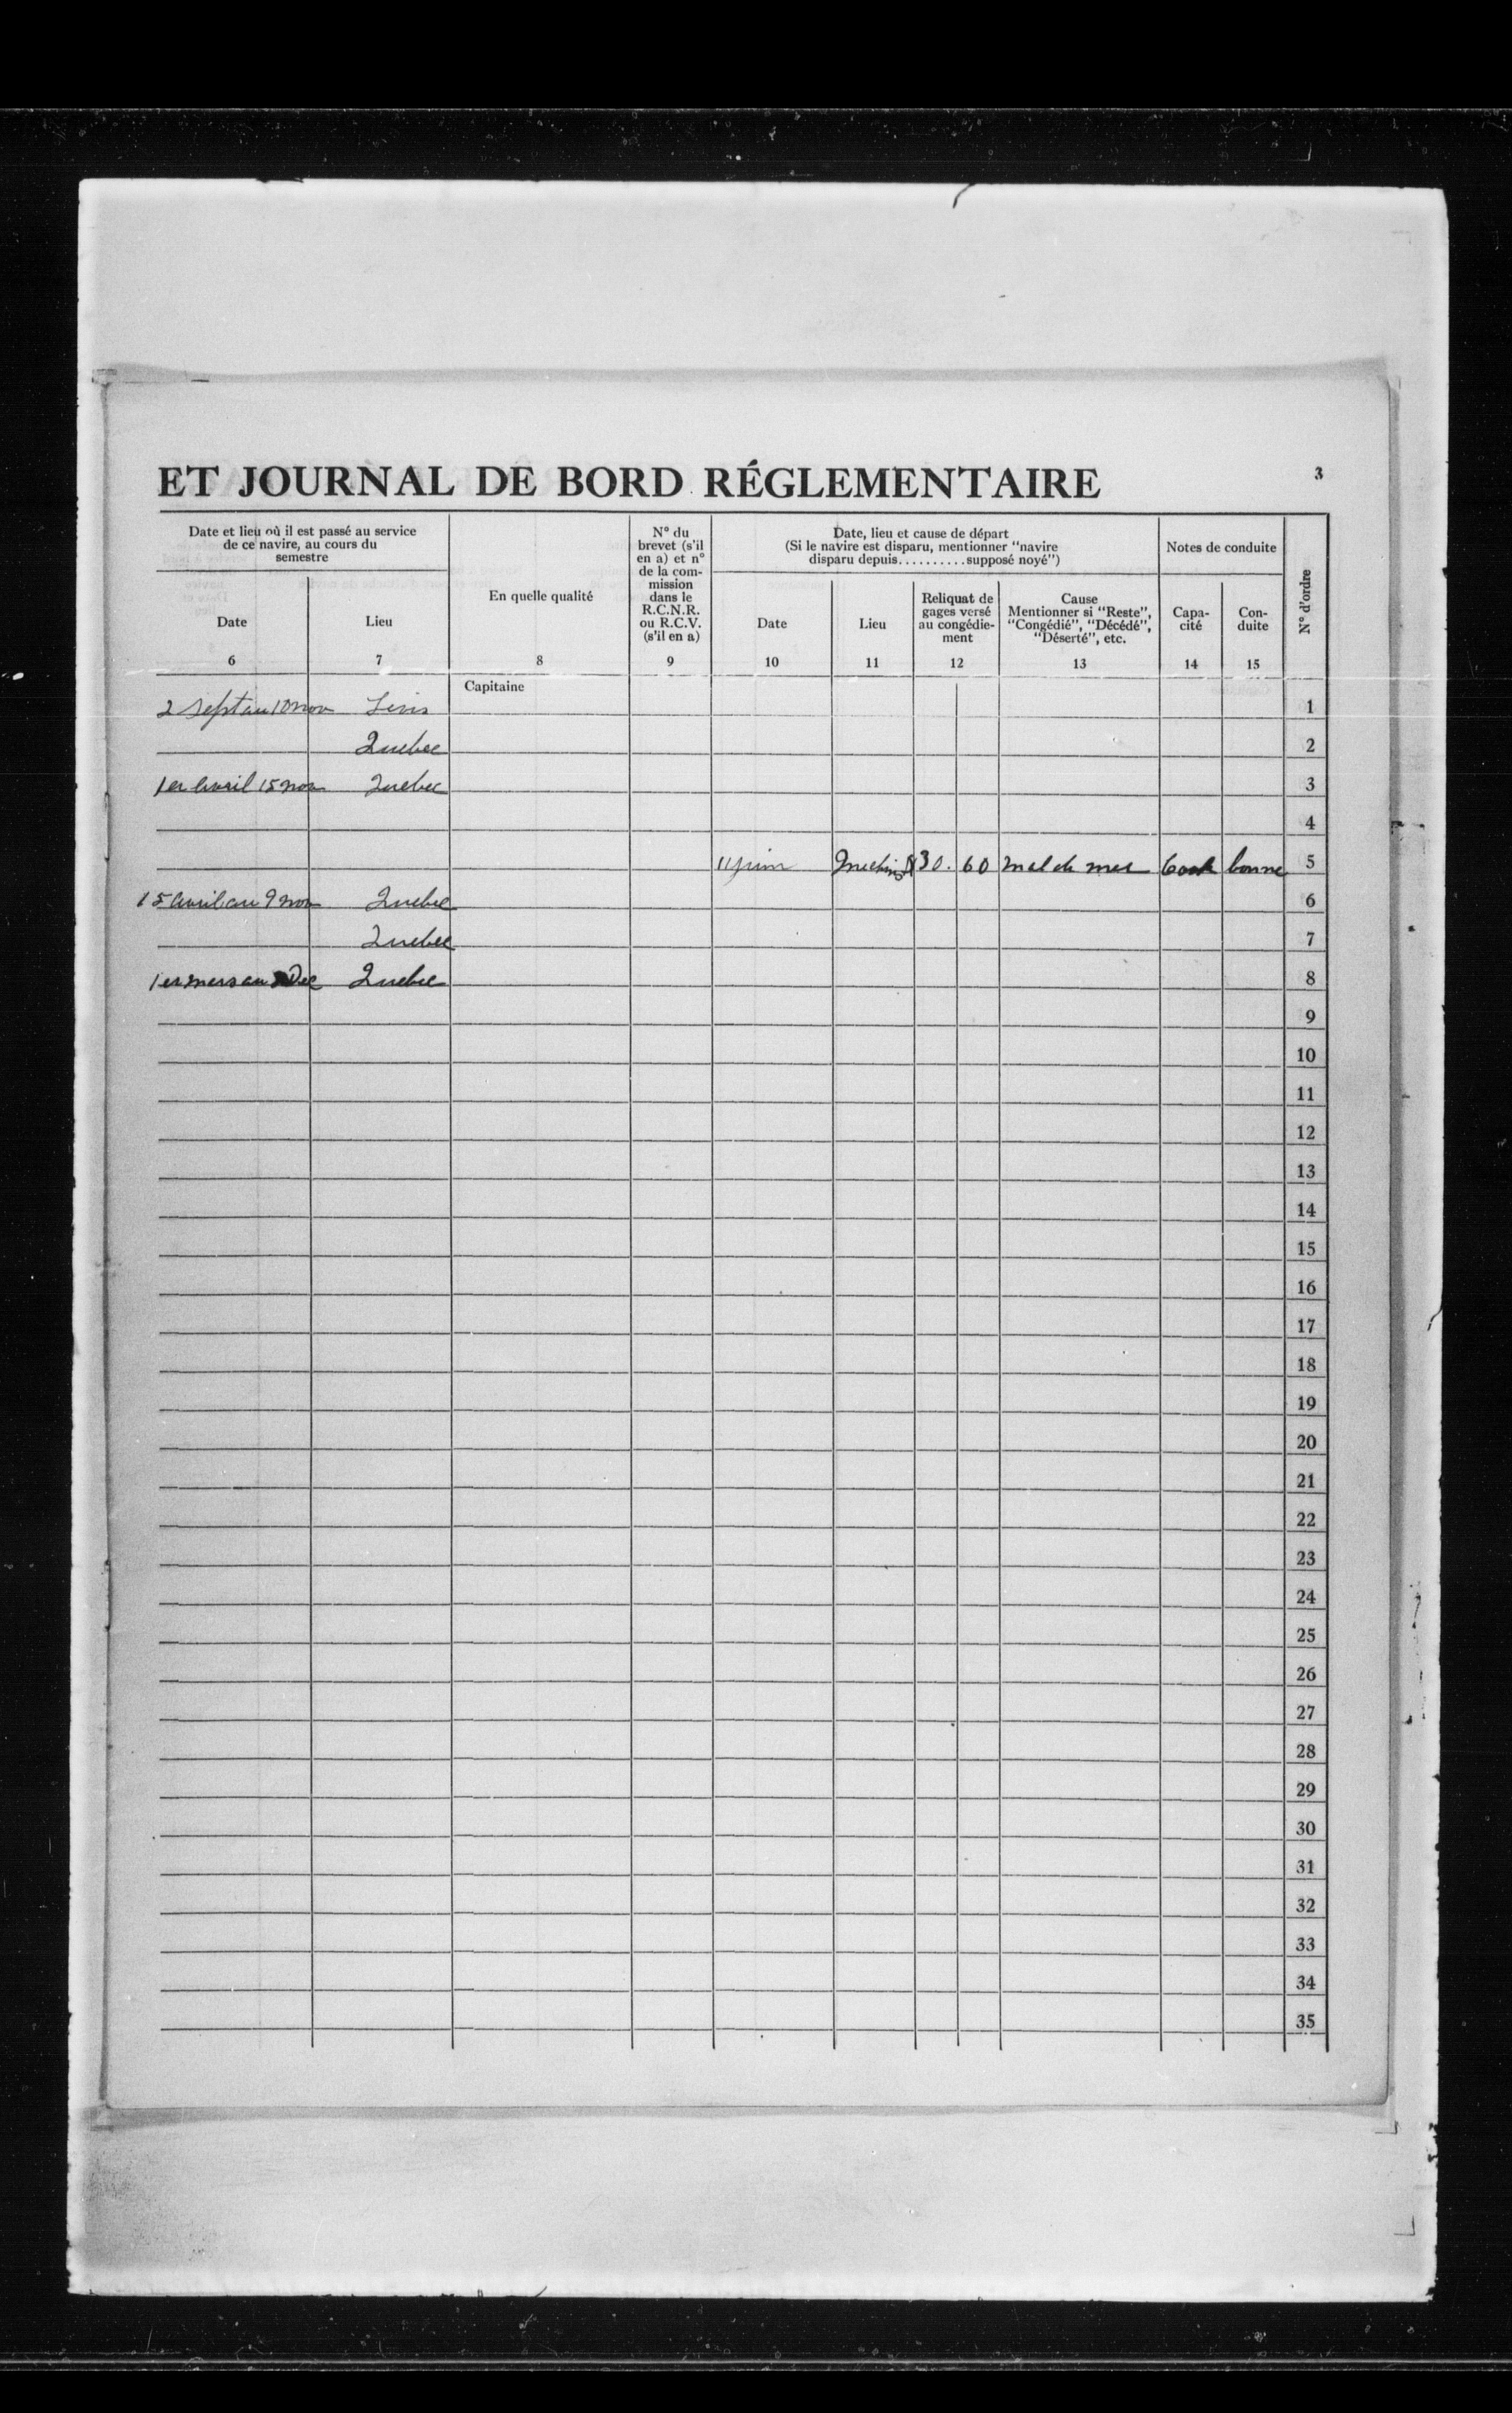 ET JOURNAL DE BORD RÉGLEMENTAIRE
3
Date et lieu où il est passé au service
de ce navire, au cours du
semestre
Date
6
Lieu
7
En quelle qualité
8
N° du
brevet (s'il
en a) et n°
de la com-
mission
dans le
R.C.N.R.
ou R.C.V.
(s'il en a)
9
Date, lieu et cause de départ
(Si le navire est disparu, mentionner "navire
disparu depuis..........supposé noyé")
Date
10
Lieu
11
Reliquat de
gages versé
au congédie-
ment
12
Cause
Mentionner si "Reste",
"Congédié", "Décédé",
"Déserté", etc.
13
Notes de conduite
Capa-
cité
14
Con-
duite
15
N° d'ordre
Capitaine
2 Sept au 10 nov Levis 1
Quebec 2
1er Avril 15 nov Quebec 3
4
11 juin $30. 60 mal de mer Cook bonne 5
15 Avril au 9 nov Quebec 6
Quebec 7
1er mars au Dec Quebec 8
9
10
11
12
13
14
15
16
17
18
19
20
21
22
23
24
25
26
27
28
29
30
31
32
33
34
35